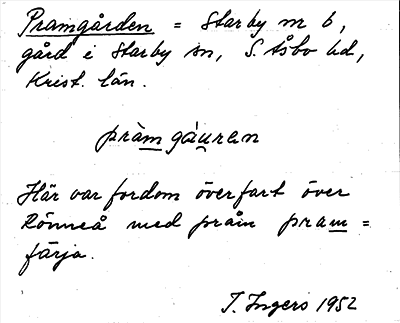 Pramgården = Starby nr 6,
gård i Starby sn, S. Åsbo hd,
Krist. län.
pràm gáuren
Här var fordom överfart över
Rönneå med pråm pram =
färja.
I. Ingers 1952